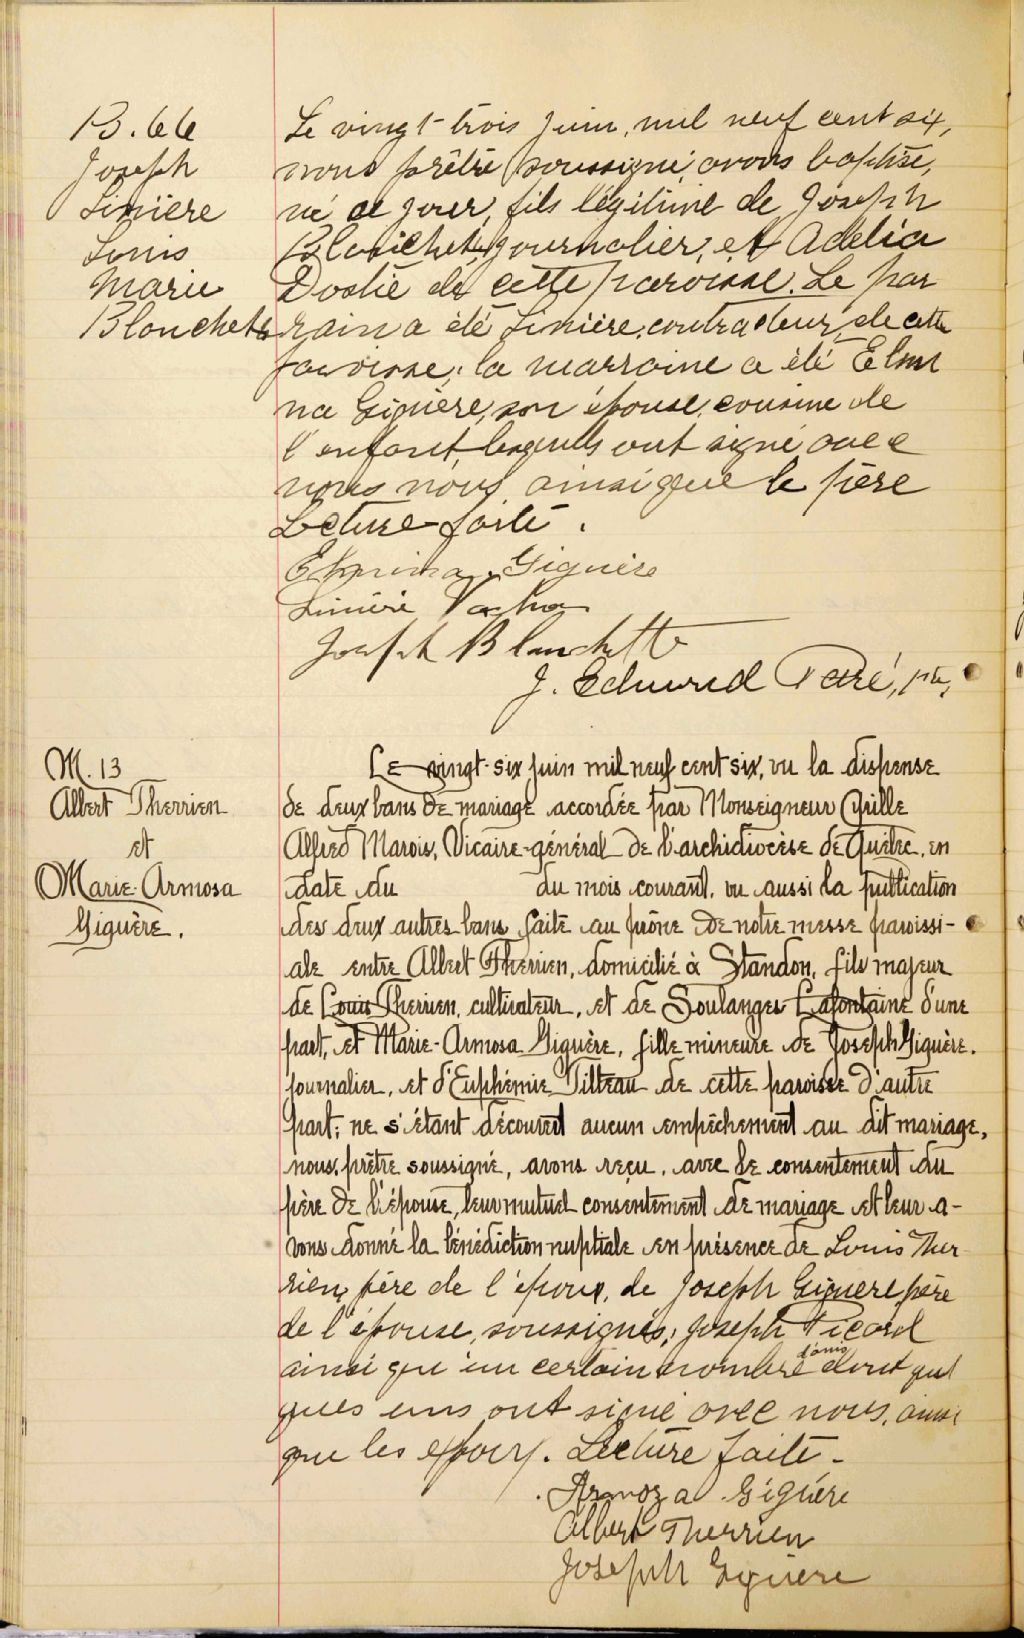 B. 66
Joseph
Linière
Louis
Marie
Blanchette
Le vingt-trois juin, mil neuf cent six,
nous prêtre soussigné, avons baptisé,
né ce jour, fils légitime de Joseph
Blanchette, journalier, et Adélia
Dostie de cette paroisse. Le par
rain a été Linière, contracteur, de cette
paroisse; la marraine a été Elmi
na Giguère, son épouse, cousine de
l'enfant, lesquels ont signé avec
nous, ainsi que le père
Lecture faite.
Elmina Giguère
Linière Vachon
Joseph Blanchette
J. Edouard Paré, ptre,
M. 13
Albert Therrien
et
Marie-Armosa
Giguère.
Le vingt-six juin mil neuf cent six, vu la dispense
de deux bans de mariage accordée par Monseigneur Cyrille
Alfred Marois, Vicaire-général de l'archidiocèse de Québec, en
date du du mois courant, vu aussi la publication
des deux autres bans faite au prône de notre messe paroissi-
ale entre Albert Therrien, domicilié à Standon, fils majeur
de Louis Therrien, cultivateur, et de Soulanges Lafontaine d'une
part, et Marie-Armosa Giguère, fille mineure de Joseph Giguère,
journalier, et d'Euphémie Tilteau de cette paroisse d'autre
part; ne s'étant découvert aucun empêchement au dit mariage,
nous, prêtre soussigné, avons reçu, avec le consentement du
père de l'épouse, leur mutuel consentement de mariage et leur a-
vons donné la bénédiction nuptiale en présence de Louis Ther
rien, père de l'époux, de Joseph Giguere, père
de l'épouse, soussignés, Joseph Picard
ainsi qu'un certain nombre d'amis dont quel
ques uns ont signé avec nous, ainsi
que les époux. Lecture faite -
Armoza Giguère
Albert Therrien
Joseph Giguere